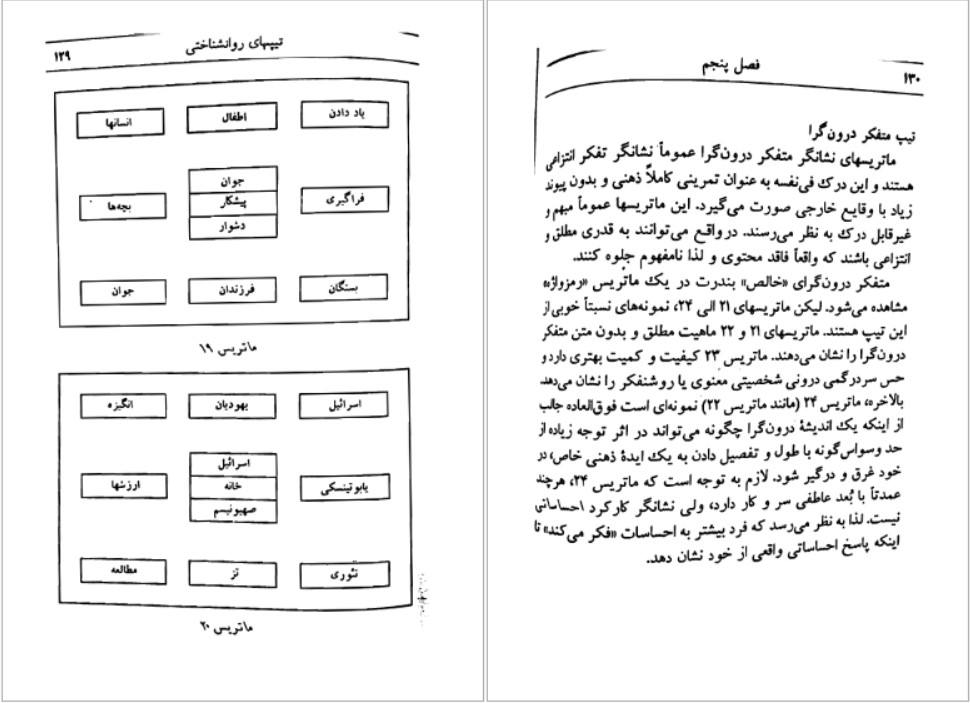 تیپهای روانشناختی
۱۲۹
یاد دادن
اطفال
انسانها
جوان
پیشکار
دشوار
فراگیری
بچه‌ها
بستگان
فرزندان
جوان
ماتریس ۱۹
اسرائیل
یهودیان
انگیزه
اسرائیل
خانه
صهیونیسم
یابوتینسکی
ارزشها
تئوری
تز
مطالعه
ماتریس ۲۰
۱۳۰
فصل پنجم
تیپ متفکر درون‌گرا
ماتریسهای نشانگر متفکر درون‌گرا عموماً نشانگر تفکر انتزاعی
هستند و این درک فی‌نفسه به عنوان تمرینی کاملاً ذهنی و بدون پیوند
زیاد با وقایع خارجی صورت می‌گیرد. این ماتریسها عموماً مبهم و
غیرقابل درک به نظر می‌رسند. درواقع می‌توانند به قدری مطلق و
انتزاعی باشند که واقعاً فاقد محتوی و لذا نامفهوم جلوه کنند.
متفکر درون‌گرای «خالص» بندرت در یک ماتریس «رمزواژه»
مشاهده می‌شود. لیکن ماتریسهای ۲۱ الی ۲۴، نمونه‌های نسبتاً خوبی از
این تیپ هستند. ماتریسهای ۲۱ و ۲۲ ماهیت مطلق و بدون متن متفکر
درون‌گرا را نشان می‌دهند. ماتریس ۲۳ کیفیت و کمیت بهتری دارد و
حس سردرگمی درونی شخصیتی معنوی یا روشنفکر را نشان می‌دهد.
بالاخره، ماتریس ۲۴ (مانند ماتریس ۲۲) نمونه‌ای است فوق‌العاده جالب
از اینکه یک اندیشهٔ درون‌گرا چگونه می‌تواند در اثر توجه زیاده از
حد وسواس‌گونه با طول و تفصیل دادن به یک ایدهٔ ذهنی خاص، در
خود غرق و درگیر شود. لازم به توجه است که ماتریس ۲۴، هرچند
عمدتاً با بُعد عاطفی سر و کار دارد، ولی نشانگر کارکرد احساساتی
نیست. لذا به نظر می‌رسد که فرد بیشتر به احساسات «فکر می‌کند» تا
اینکه پاسخ احساساتی واقعی از خود نشان دهد.